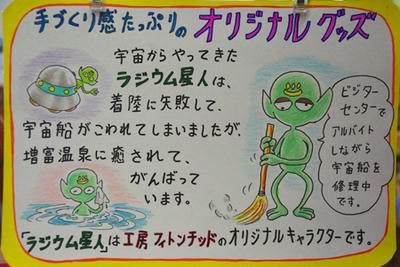 手づくり感たっぷりの オリジナルグッズ
宇宙からやってきた
ラジウム星人は、
着陸に失敗して、
宇宙船がこわれてしまいましたが、
増富温泉に癒されて、
がんばって
います。
ビジター
センターで
アルバイト
しながら
宇宙船を
修理中
です。
「ラジウム星人」は工房フィトンチッドのオリジナルキャラクターです。